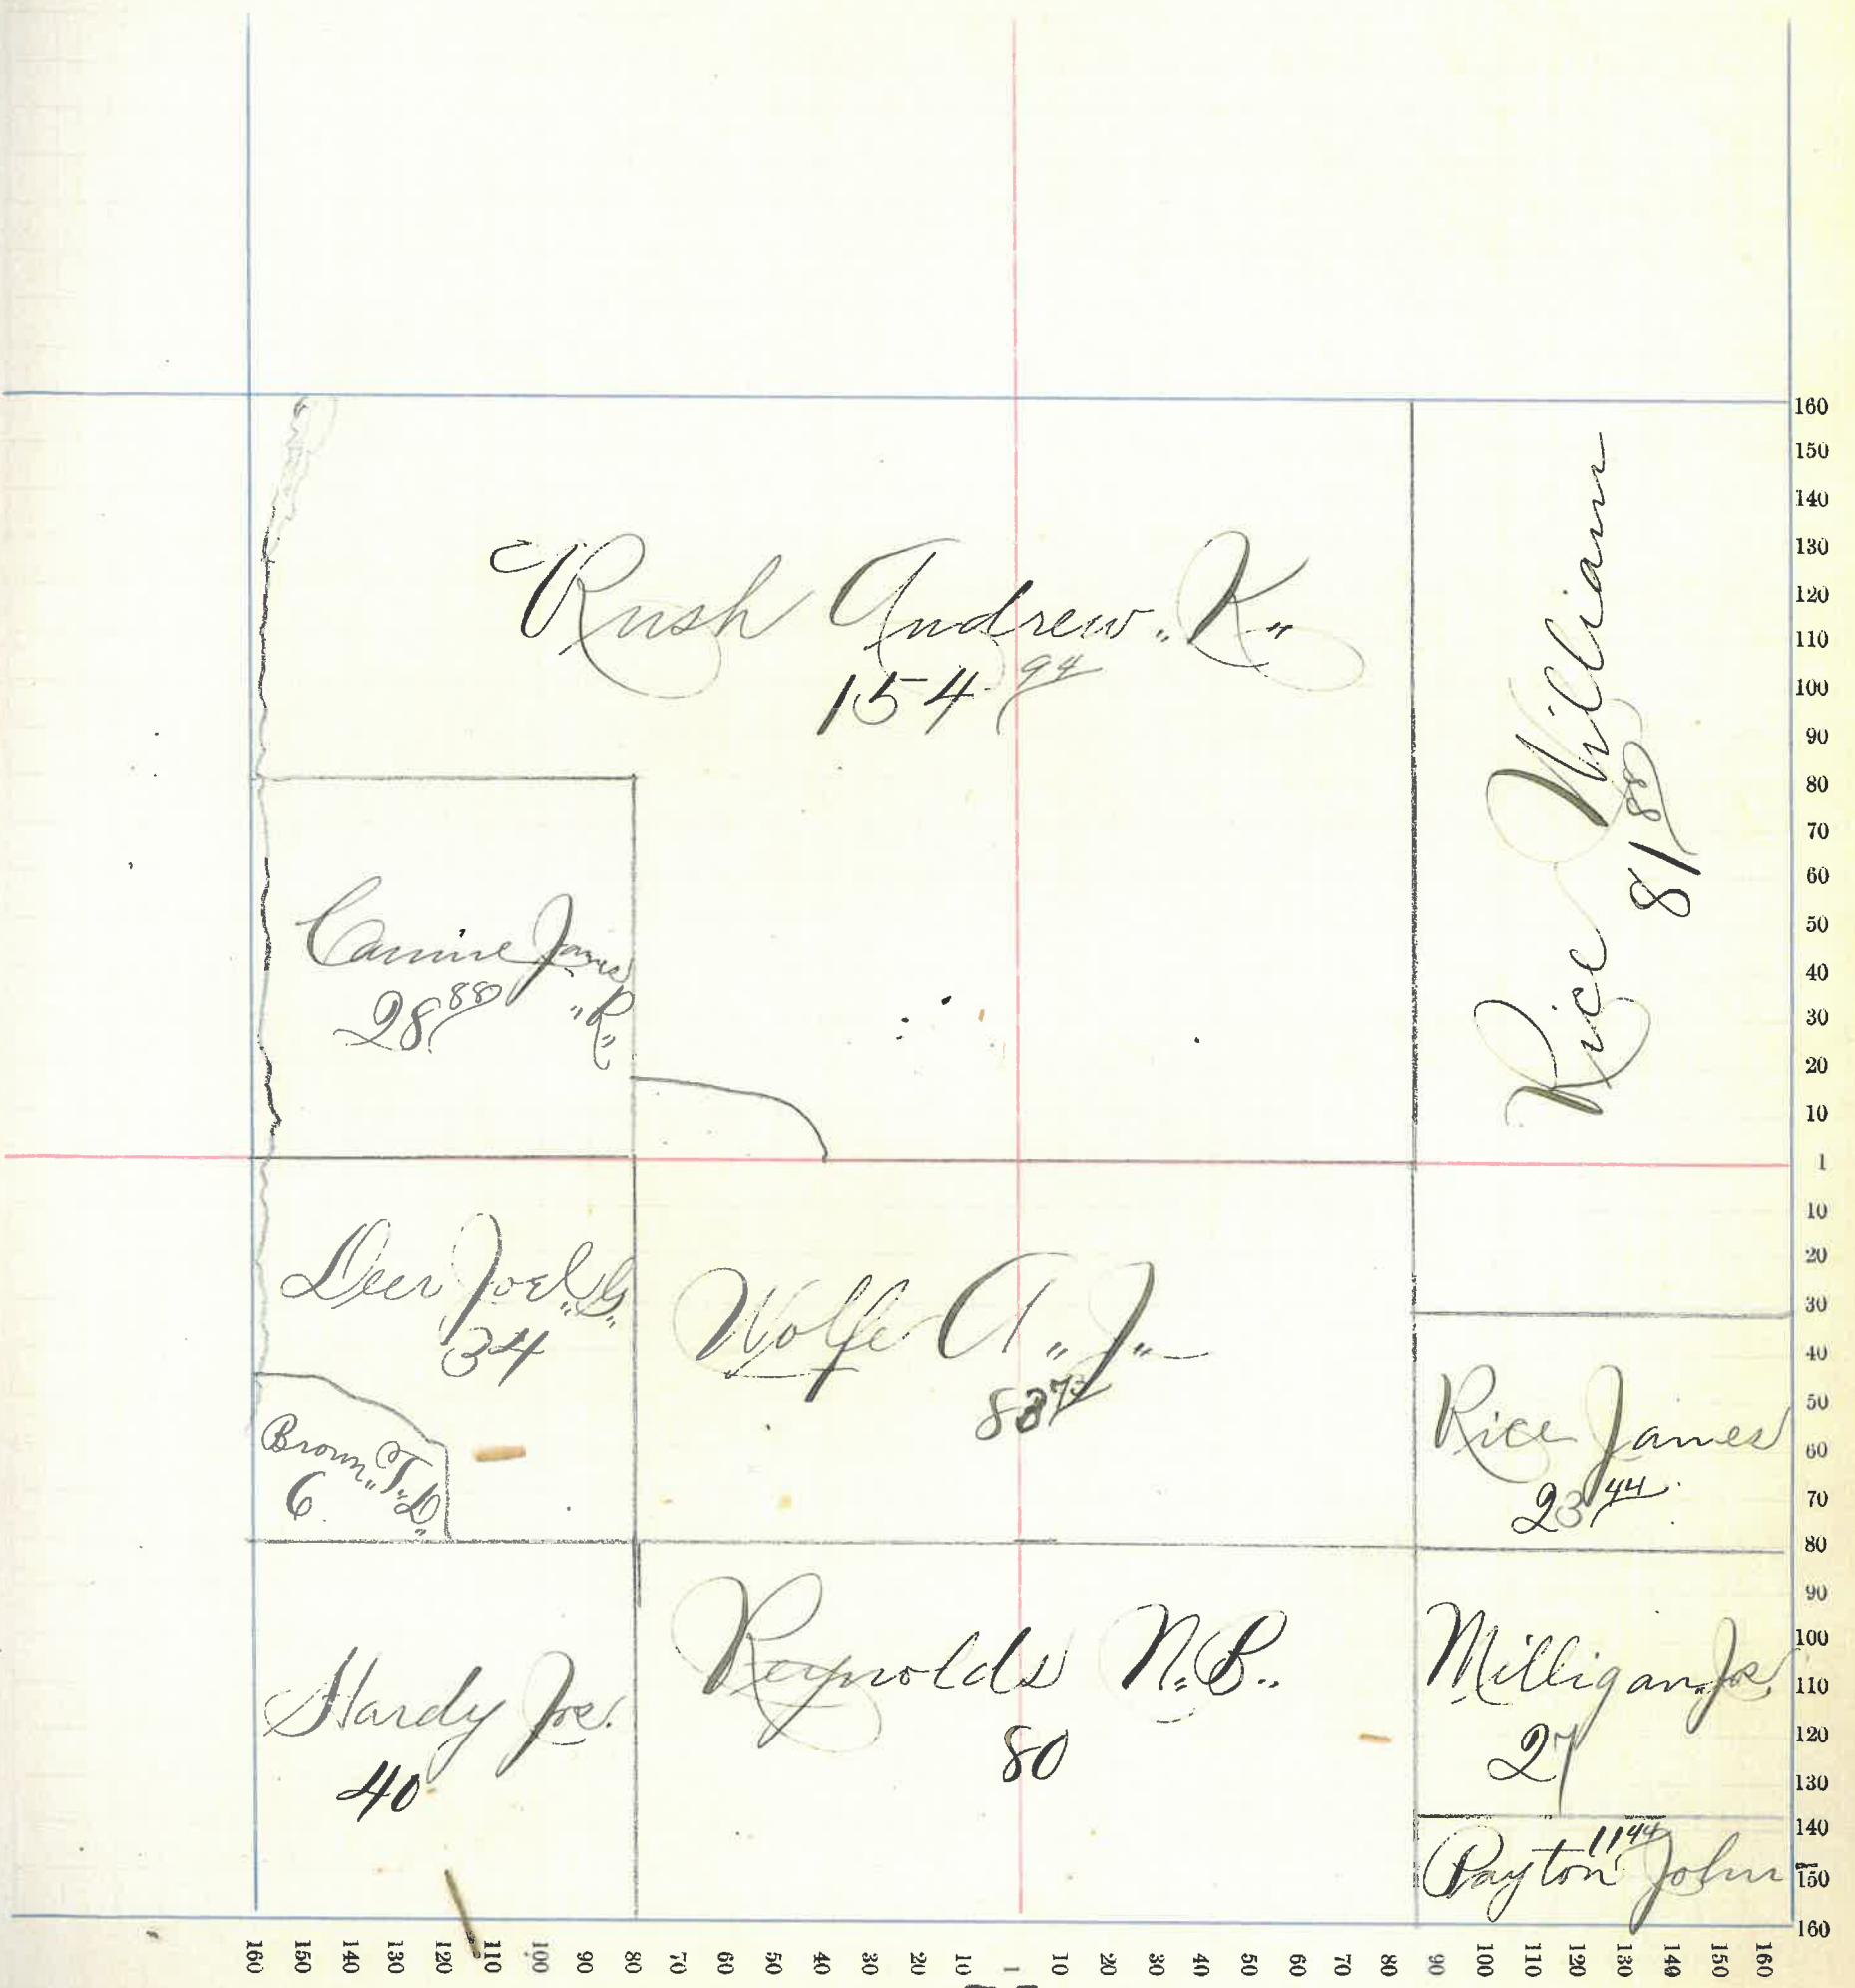 Rush Andrew "K"
154 94
Rice William
81 88
Canine James
"R"
28 88
Deer Joel "G"
34
Wolfe A "J"
Brown "T" D"
6
Rice James
23 44
Hardy Jos.
40
Reynolds N. B.
80
Milligan Jos.
27
Payton John
11 44
160
150
140
130
120
110
100
90
80
70
60
50
40
30
20
10
1
10
20
30
40
50
60
70
80
90
100
110
120
130
140
150
160
160 150 140 130 120 110 100 90 80 70 60 50 40 30 20 10 1 10 20 30 40 50 60 70 80 90 100 110 120 130 140 150 160